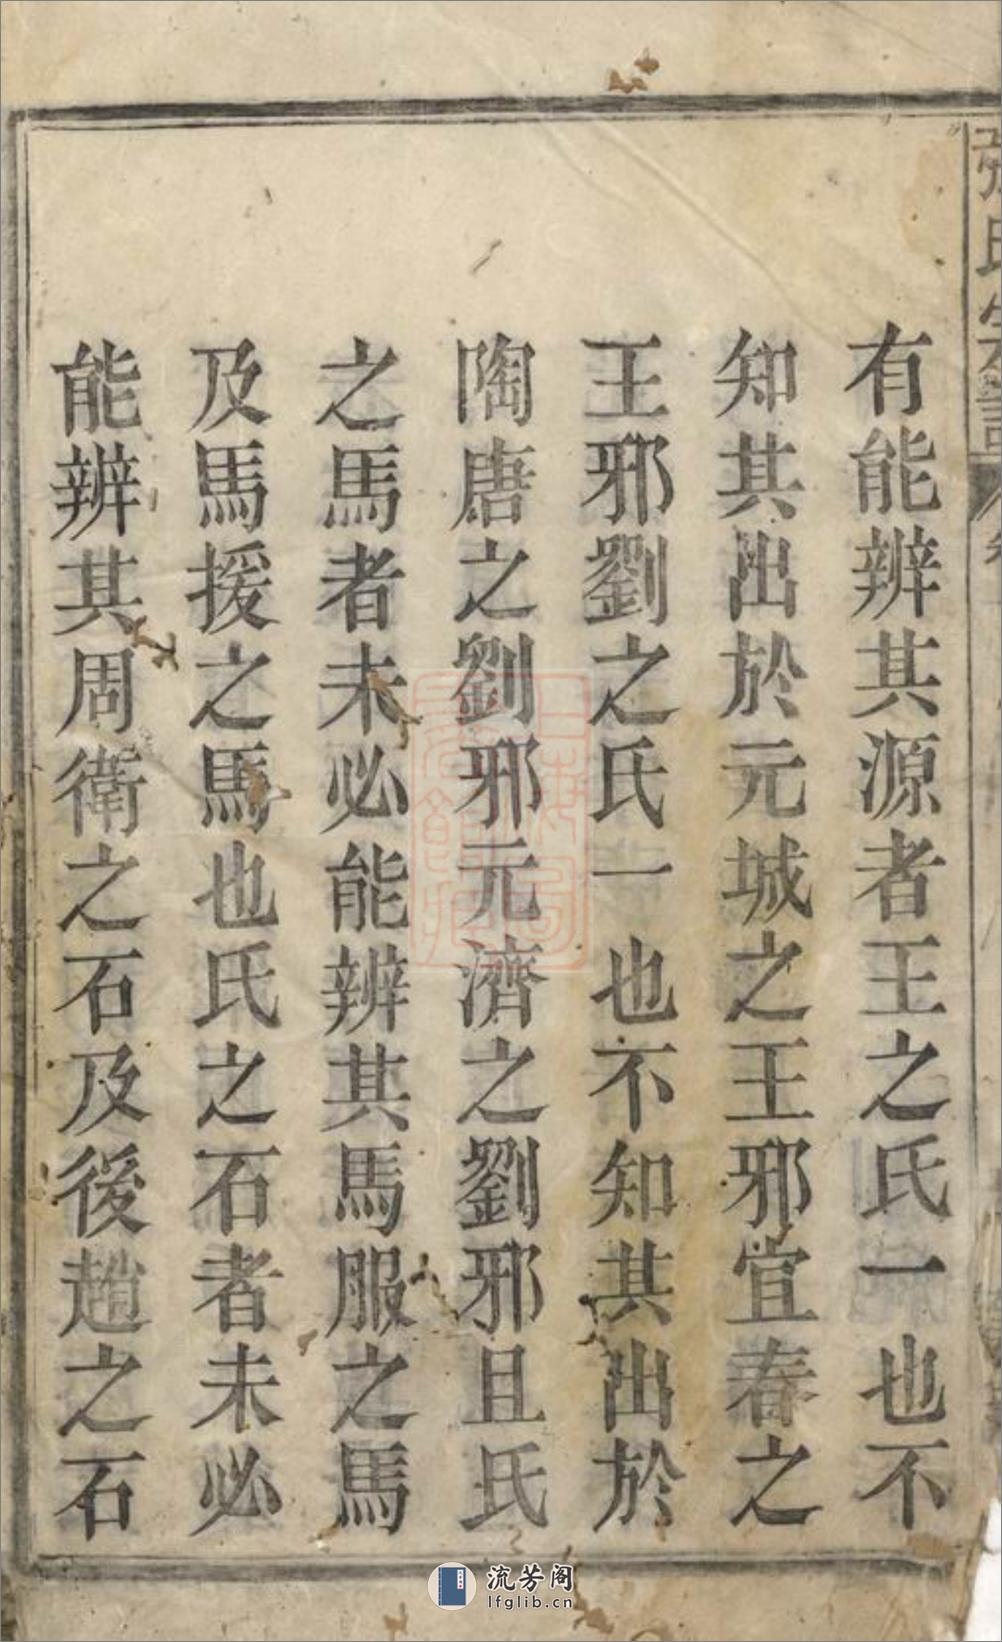 張氏宗譜
有能辨其源者王之氏一也不
知其出於元城之王邪宜春之
王邪劉之氏一也不知其出於
陶唐之劉邪元濟之劉邪且氏
之馬者未必能辨其馬服之馬
及馬援之馬也氏之石者未必
能辨其周衛之石及後趙之石
流芳阁
lfglib.cn